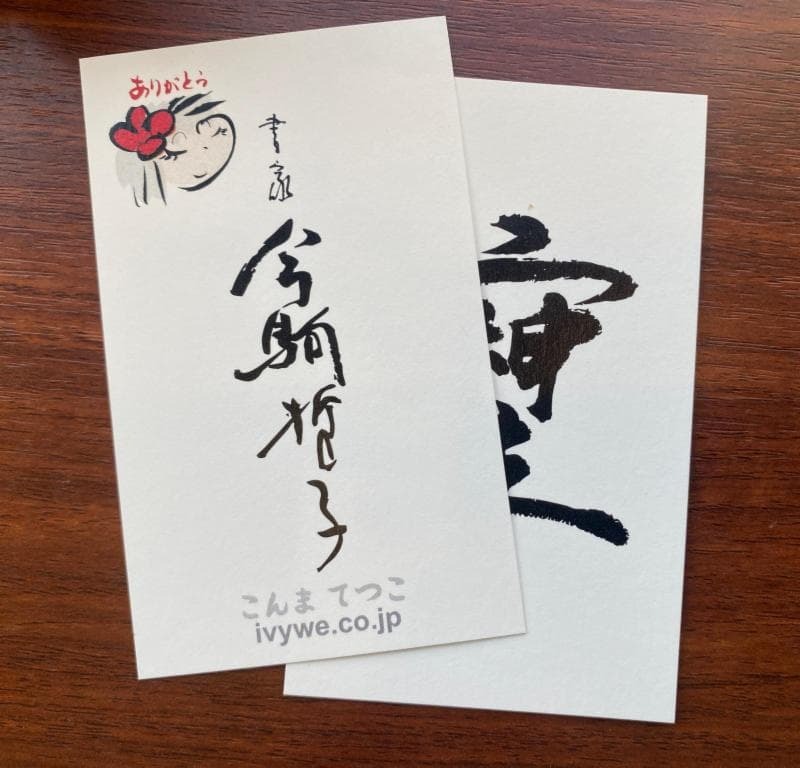 ありがとう
書家
今駒哲子
こんま てつこ
ivywe.co.jp